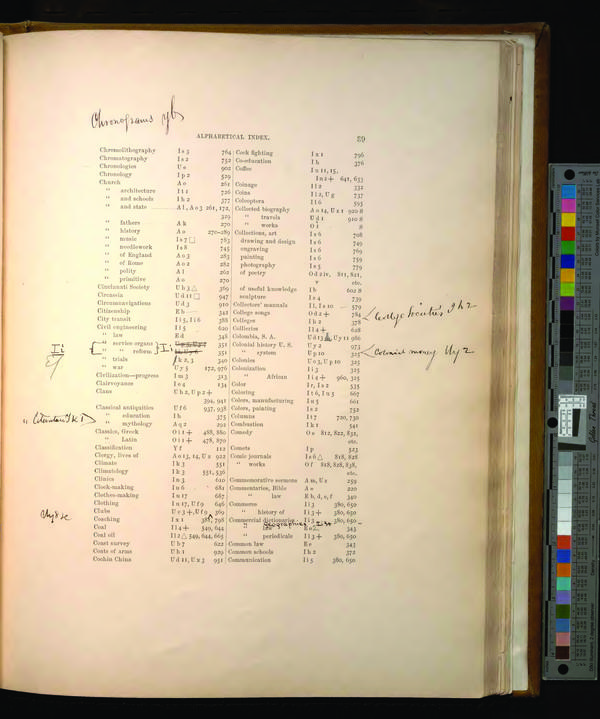 Chronograms yb
ALPHABETICAL INDEX. 89
Chromolithography I s 3 764
Chromatography I s 2 752
Chronologies U e 902
Chronology I p 2 529
Church A o 261
" architecture I t 1 726
" and schools I h 2 377
" and state A l, A o 3 261, 172,
329
" fathers A k 270
" history A o 270-289
" music I s 7 □ 783
" needlework I s 8 745
" of England A o 3 283
" of Rome A o 2 282
" polity A l 262
" primitive A o 270
Cincinnati Society U h 3 △ 369
Circassia U d 11 □ 947
Circumnavigations U d 3 910
Citizenship E h 342
City transit I i 5, I i 6 388
Civil engineering I i 5 620
" law E d 348
" service organs 351
" " reform I i 351
" trials I k 2, 3 340
" war U y 5 172, 976
Civilization—progress I m 3 313
Clairvoyance I e 4 134
Clans U h 2, U p 2 +
394, 941
Classical antiquities U f 6 937, 938
" education I h 375
" mythology A q 2 292
Classics, Greek O i 1 + 488, 880
" Latin O i 1 + 478, 870
Classification Y f 112
Clergy, lives of A o 13, 14, U x 922
Climate I k 3 551
Climatology I k 3 551, 536
Clinics I n 3 610
Clock-making I n 6 681
Clothes-making I n 17 687
Clothing I n 17, U f 9 646
Clubs U c 3 +, U f 9 369
Coaching I x 1 388, 798
Coal I l 4 + 549, 644
Coal oil I l 2 △ 549, 644, 665
Coast survey U b 7 622
Coats of arms U h 1 929
Cochin China U d 11, U x 3 951
Cock fighting I x 1 796
Co-education I h 376
Coffee I n 11, 15,
I n 2 + 641, 633
Coinage I l 2 332
Coins I l 2, U g 737
Coleoptera I l 6 595
Collected biography A o 14, U x 1 920 8
" travels U d 1 910 8
" works O i 8
Collections, art I s 6 708
drawing and design I s 6 749
engraving I s 6 769
painting I s 6 759
photography I s 5 779
of poetry O d 2 iv, 811, 821,
v etc.
of useful knowledge I b 602 8
sculpture I s 4 739
Collectors' manuals I l, I s 10 579
College songs O d 2 + 784
Colleges I h 2 378
Collieries I l 4 + 628
Colombia, S. A. U d 13, U y 11 986
Colonial history U. S. U y 2 973
" system U p 10 325
Colonies U o 3, U p 10 325
Colonization I i 3 325
" African I i 4 + 960, 325
Color I r, I s 2 535
Coloring I t 6, I n 5 667
Colors, manufacturing I n 5 661
Colors, painting I s 2 752
Columns I t 7 720, 730
Combustion I k 1 541
Comedy O e 812, 822, 832,
etc.
Comets I p 523
Comic journals I z 6 △ 818, 828
" works O f 818, 828, 838,
etc.
Commemorative sermons A m, U x 259
Commentaries, Bible A e 220
" law E b, d, e, f 340
Commerce I i 3 380, 650
" history of I i 3 + 380, 650
Commercial dictionaries I i 3 + 380, 650
" law 343
" periodicals I i 3 + 380, 650
Common law E e 343
Common schools I h 2 372
Communication I i 5 380, 650
College Societies I h 2
Colonial money U y 2
I i